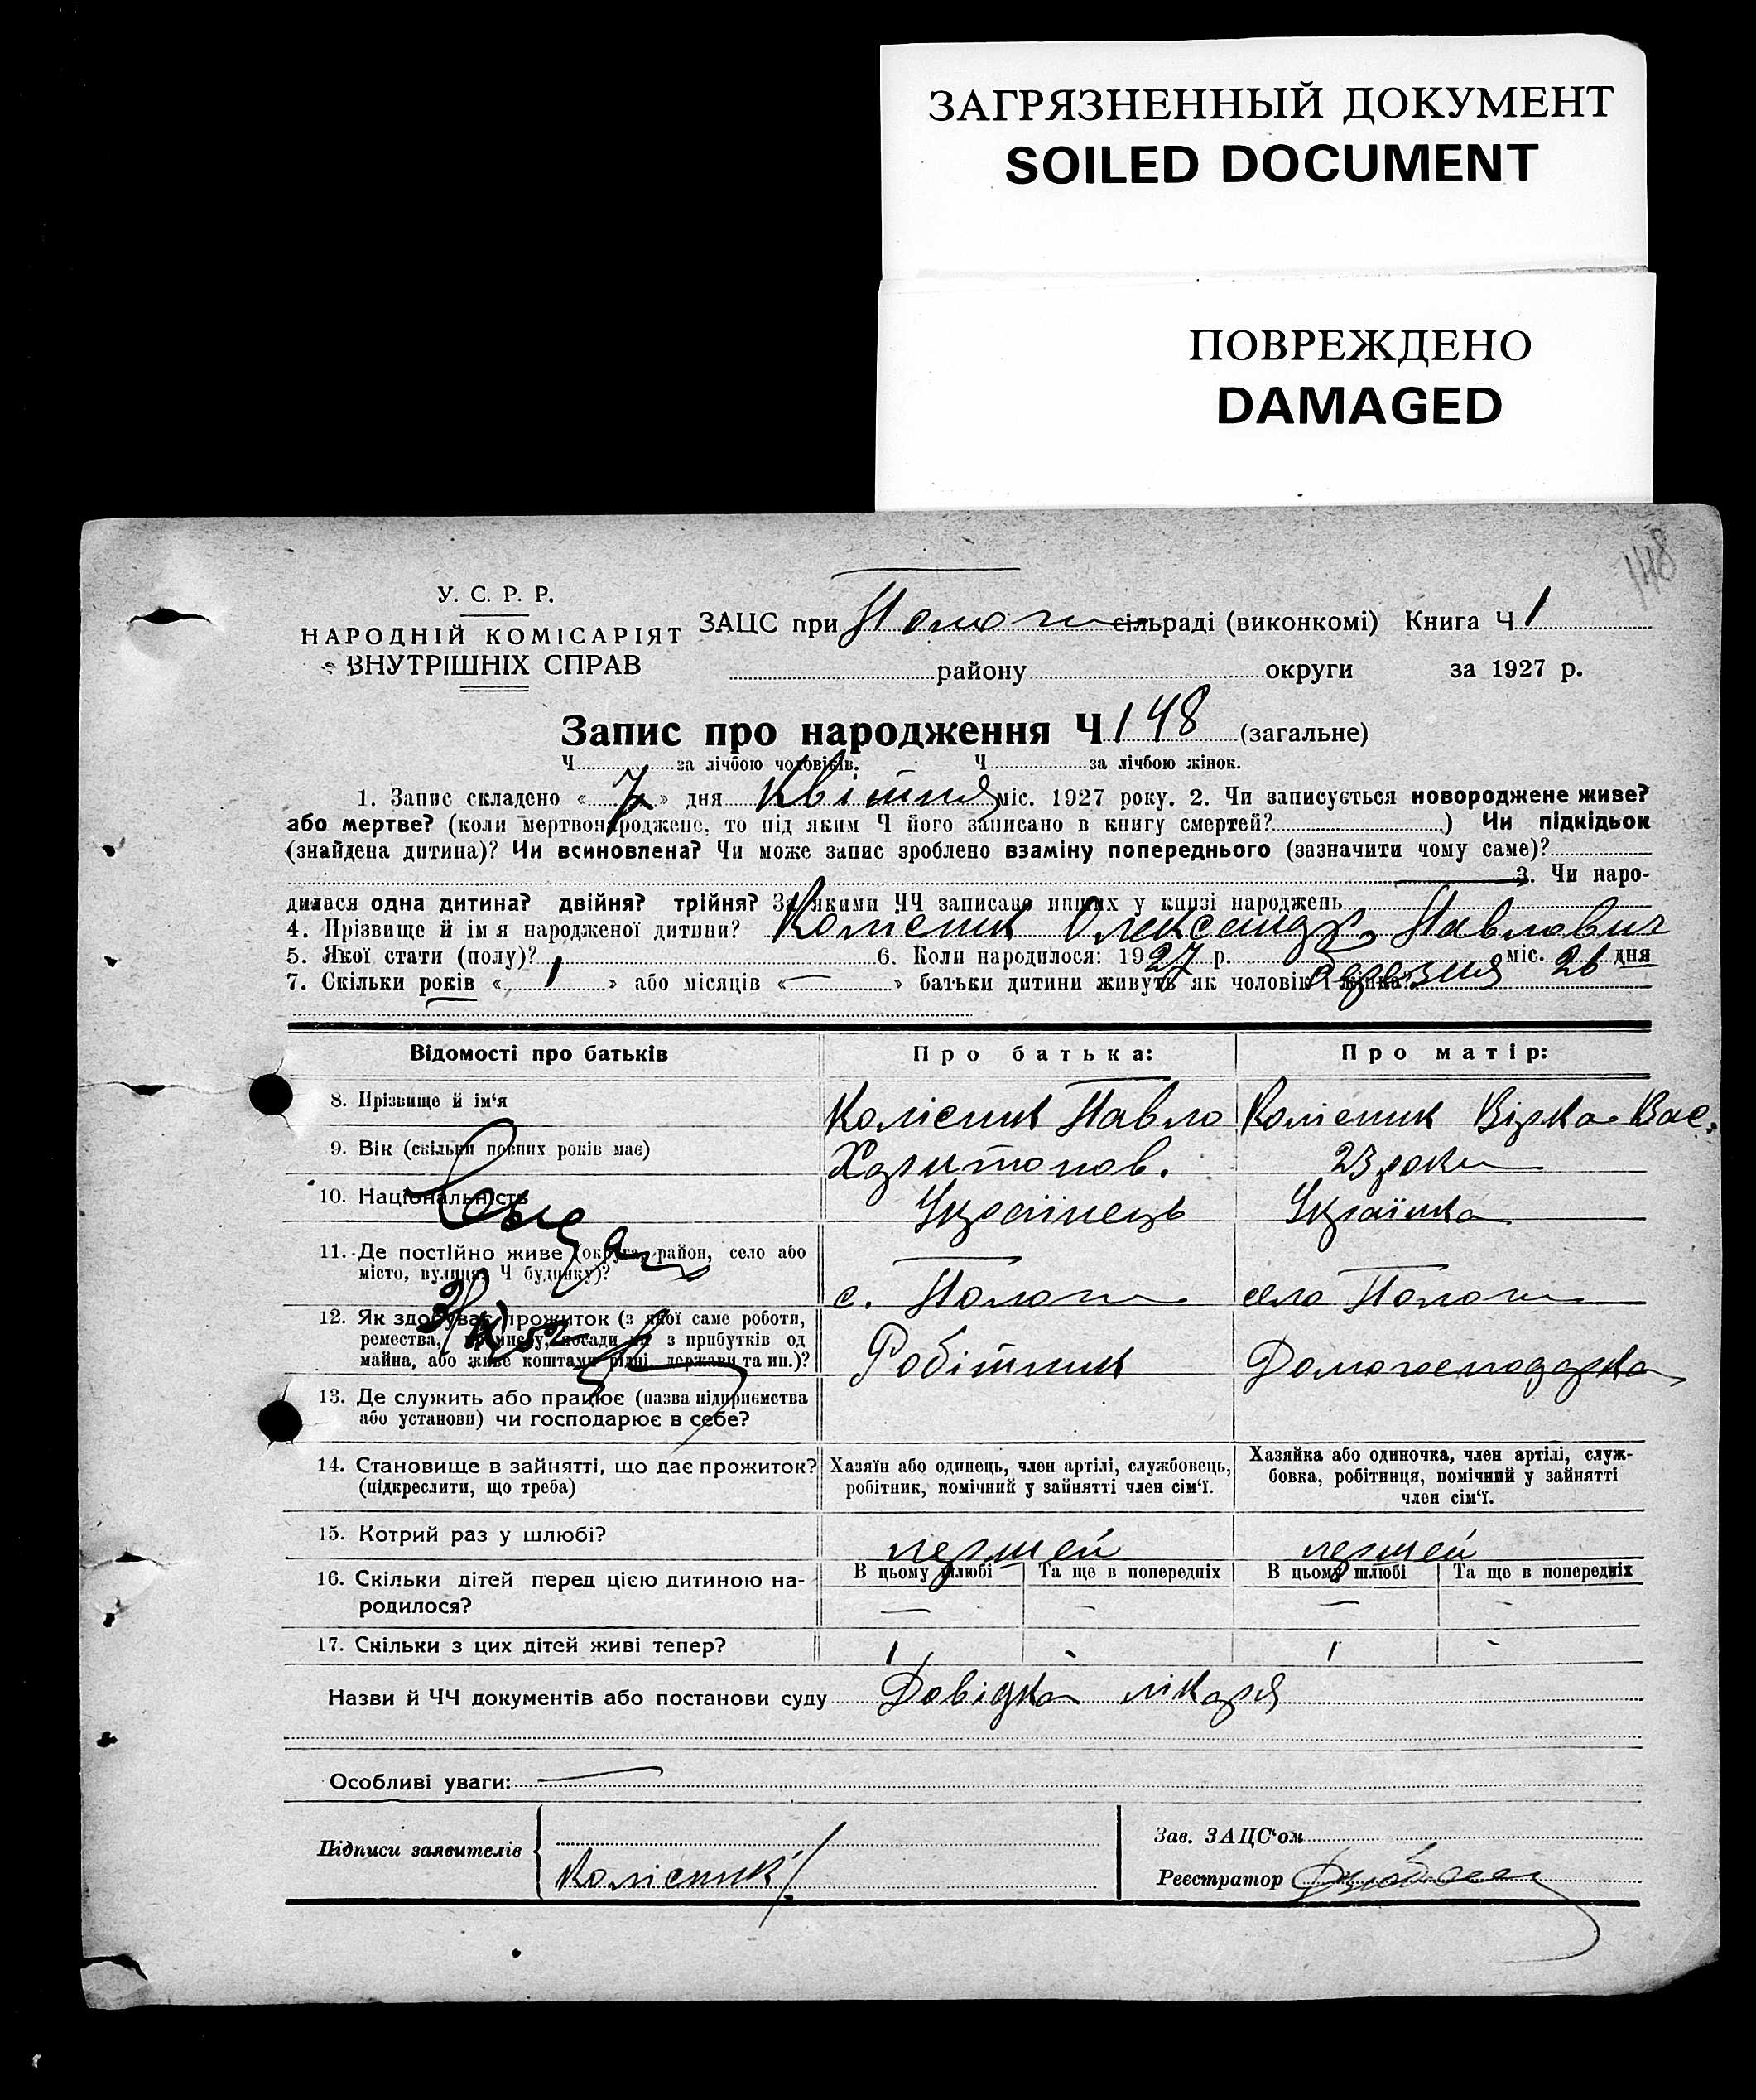 ЗАГРЯЗНЕННЫЙ ДОКУМЕНТ
SOILED DOCUMENT
ПОВРЕЖДЕНО
DAMAGED
148
У. С. Р. Р.
НАРОДНІЙ КОМІСАРІЯТ
ВНУТРІШНІХ СПРАВ
ЗАЦС при Пологи сільраді (виконкомі) Книга Ч 1
району округи за 1927 р.
Запис про народження Ч 148 (загальне)
Ч за лічбою чоловіків. Ч за лічбою жінок.
1. Запис складено « 7 » дня Квітня міс. 1927 року. 2. Чи записується новороджене живе?
або мертве? (коли мертвонароджене, то під яким Ч його записано в книгу смертей? ) Чи підкідьок
(знайдена дитина)? Чи всиновлена? Чи може запис зроблено взаміну попереднього (зазначити чому саме)?
3. Чи наро-
дилася одна дитина? двійня? трійня? За якими ЧЧ записано инших у книзі народжень
4. Прізвище й ім я народженої дитини? Колісник Олександр Павлович
5. Якої стати (полу)? 6. Коли народилося: 1927 р. Березня міс. 26 дня
7. Скільки років « 1 » або місяців « — » батьки дитини живуть як чоловік і жінка?
Відомості про батьків Про батька: Про матір:
8. Прізвище й ім‘я Колісник Павло Колісник Вірка Вас.
9. Вік (скільки повних років має) Харитонов. 23 роки
10. Національність Українець Українка
11. Де постійно живе (округа, район, село або
місто, вулиця, Ч будинку)? с. Пологи село Пологи
12. Як здобуває прожиток (з якої саме роботи,
ремества, промислу, посади чи з прибутків од
майна, або живе коштами рідні, держави та ин.)? Робітник Домогосподарка
13. Де служить або працює (назва підприємства
або установи) чи господарює в себе?
14. Становище в зайнятті, що дає прожиток?
(підкреслити, що треба)
Хазяїн або одинець, член артілі, службовець,
робітник, помічний у зайнятті член сім‘ї.
Хазяйка або одиночка, член артілі, служ-
бовка, робітниця, помічний у зайнятті
член сім‘ї.
15. Котрий раз у шлюбі? первшей первшей
В цьому шлюбі Та ще в попередніх В цьому шлюбі Та ще в попередніх
16. Скільки дітей перед цією дитиною на-
родилося? — – — -
17. Скільки з цих дітей живі тепер? 1 - 1 -
Назви й ЧЧ документів або постанови суду Довідка лікаря
Особливі уваги: —
Підписи заявителів
Колісник
Зав. ЗАЦС‘ом
Реєстратор